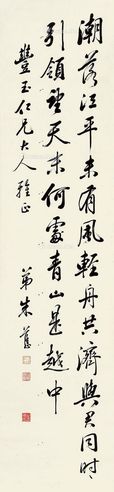 潮落江平未有風輕舟共濟與君同時々
引領望天末何處青山是越中
豐玉仁兄大人雅正
弟朱蔭